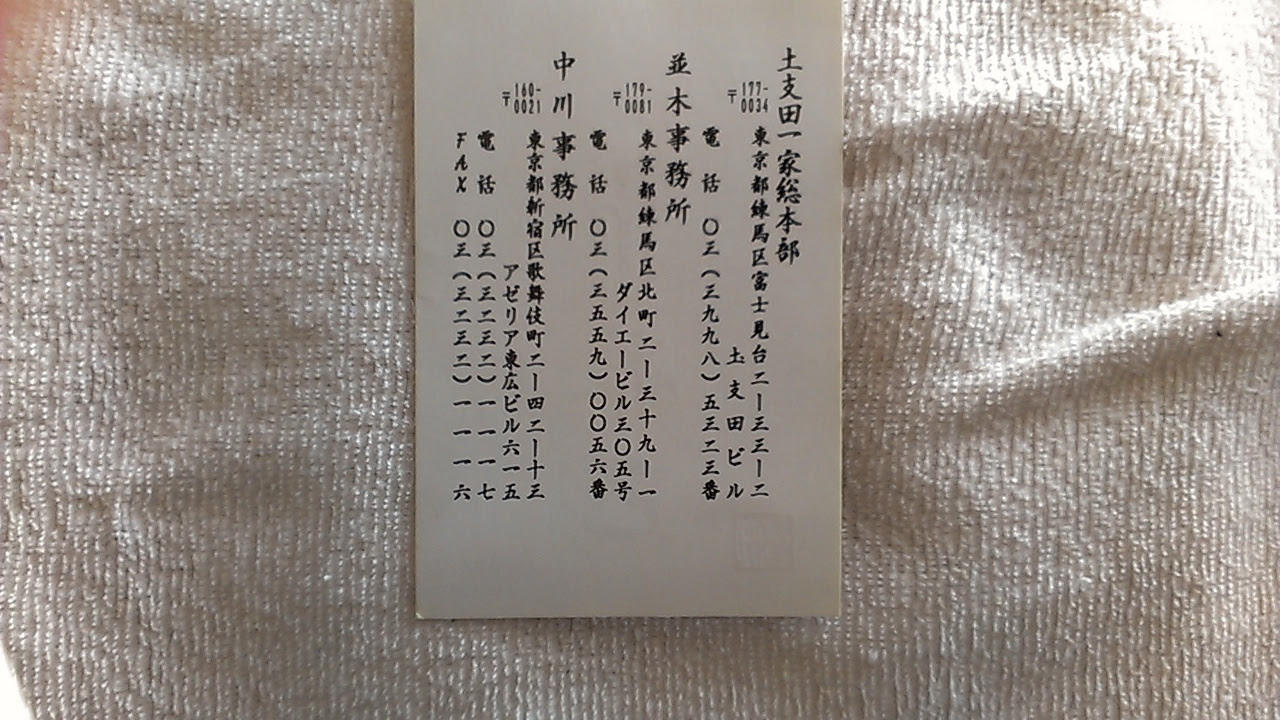 土支田一家総本部
〒177-0034
東京都練馬区富士見台二ー三三ー二
土支田ビル
電話 〇三(三九九八)五三二三番
並木事務所
〒179-0081
東京都練馬区北町二ー三十九ー一
ダイエービル三〇五号
電話 〇三(三五五九)〇〇五六番
中川事務所
〒160-0021
東京都新宿区歌舞伎町二ー四二ー十三
アゼリア東広ビル六一五
電話 〇三(三二三二)一一一七
FAX 〇三(三二三二)一一一六